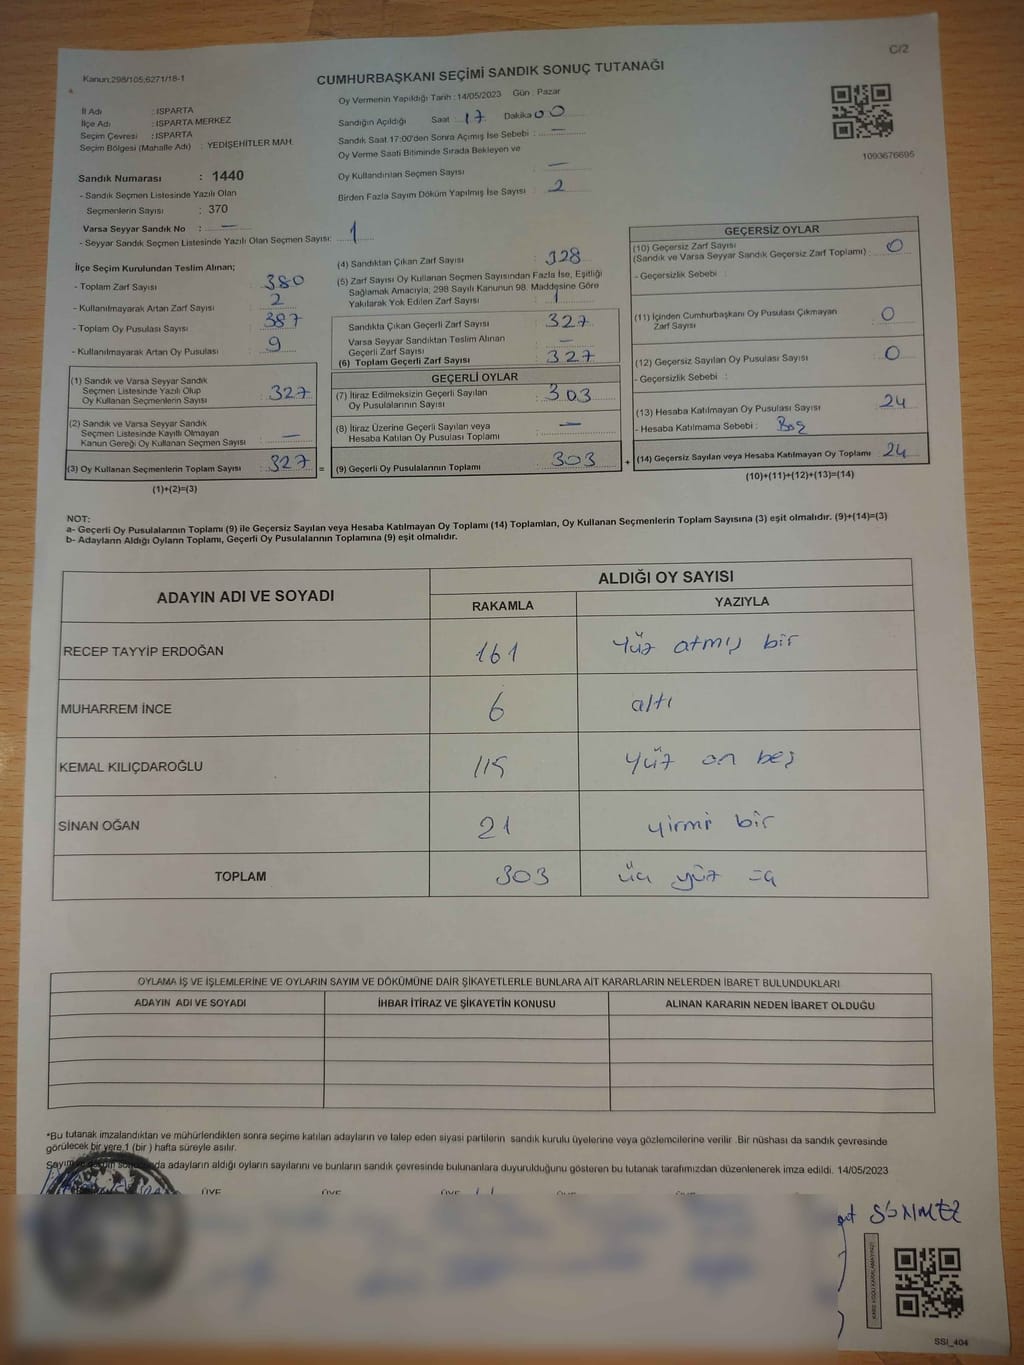 C/2
Kanun:298/105;6271/18-1
CUMHURBAŞKANI SEÇİMİ SANDIK SONUÇ TUTANAĞI
İl Adı : ISPARTA
İlçe Adı : ISPARTA MERKEZ
Seçim Çevresi : ISPARTA
Seçim Bölgesi (Mahalle Adı) : YEDİŞEHİTLER MAH.
Sandık Numarası : 1440
- Sandık Seçmen Listesinde Yazılı Olan
Seçmenlerin Sayısı : 370
Varsa Seyyar Sandık No : —
- Seyyar Sandık Seçmen Listesinde Yazılı Olan Seçmen Sayısı: 1
Oy Vermenin Yapıldığı Tarih : 14/05/2023 Gün : Pazar
Sandığın Açıldığı Saat 17 Dakika 00
Sandık Saat 17:00'den Sonra Açımış İse Sebebi : —
Oy Verme Saati Bitiminde Sırada Bekleyen ve
Oy Kullandırılan Seçmen Sayısı : —
Birden Fazla Sayım Döküm Yapılmış İse Sayısı : 2
1093676695
İlçe Seçim Kurulundan Teslim Alınan;
- Toplam Zarf Sayısı : 380
- Kullanılmayarak Artan Zarf Sayısı : 2
- Toplam Oy Pusulası Sayısı : 387
- Kullanılmayarak Artan Oy Pusulası : 9
(1) Sandık ve Varsa Seyyar Sandık
Seçmen Listesinde Yazılı Olup
Oy Kullanan Seçmenlerin Sayısı : 327
(2) Sandık ve Varsa Seyyar Sandık
Seçmen Listesinde Kayıtlı Olmayan
Kanun Gereği Oy Kullanan Seçmen Sayısı : —
(3) Oy Kullanan Seçmenlerin Toplam Sayısı : 327 =
(1)+(2)=(3)
(4) Sandıktan Çıkan Zarf Sayısı : 328
(5) Zarf Sayısı Oy Kullanan Seçmen Sayısından Fazla İse, Eşitliği
Sağlamak Amacıyla; 298 Sayılı Kanunun 98. Maddesine Göre
Yakılarak Yok Edilen Zarf Sayısı : 1
Sandıkta Çıkan Geçerli Zarf Sayısı : 327
Varsa Seyyar Sandıktan Teslim Alınan
Geçerli Zarf Sayısı : —
(6) Toplam Geçerli Zarf Sayısı : 327
GEÇERLİ OYLAR
(7) İtiraz Edilmeksizin Geçerli Sayılan
Oy Pusulalarının Sayısı : 303
(8) İtiraz Üzerine Geçerli Sayılan veya
Hesaba Katılan Oy Pusulası Toplamı : —
(9) Geçerli Oy Pusulalarının Toplamı : 303 +
GEÇERSİZ OYLAR
(10) Geçersiz Zarf Sayısı : 0
(Sandık ve Varsa Seyyar Sandık Geçersiz Zarf Toplamı)
- Geçersizlik Sebebi :
(11) İçinden Cumhurbaşkanı Oy Pusulası Çıkmayan
Zarf Sayısı : 0
(12) Geçersiz Sayılan Oy Pusulası Sayısı : 0
- Geçersizlik Sebebi :
(13) Hesaba Katılmayan Oy Pusulası Sayısı : 24
- Hesaba Katılmama Sebebi : Boş
(14) Geçersiz Sayılan veya Hesaba Katılmayan Oy Toplamı : 24
(10)+(11)+(12)+(13)=(14)
NOT:
a- Geçerli Oy Pusulalarının Toplamı (9) ile Geçersiz Sayılan veya Hesaba Katılmayan Oy Toplamı (14) Toplamları, Oy Kullanan Seçmenlerin Toplam Sayısına (3) eşit olmalıdır. (9)+(14)=(3)
b- Adayların Aldığı Oyların Toplamı, Geçerli Oy Pusulalarının Toplamına (9) eşit olmalıdır.
ADAYIN ADI VE SOYADI
ALDIĞI OY SAYISI
RAKAMLA YAZIYLA
RECEP TAYYİP ERDOĞAN 161 Yüz atmış bir
MUHARREM İNCE 6 altı
KEMAL KILIÇDAROĞLU 115 Yüz on beş
SİNAN OĞAN 21 yirmi bir
TOPLAM 303 üç yüz üç
OYLAMA İŞ VE İŞLEMLERİNE VE OYLARIN SAYIM VE DÖKÜMÜNE DAİR ŞİKAYETLERLE BUNLARA AİT KARARLARIN NELERDEN İBARET BULUNDUKLARI
ADAYIN ADI VE SOYADI İHBAR İTİRAZ VE ŞİKAYETİN KONUSU ALINAN KARARIN NEDEN İBARET OLDUĞU
*Bu tutanak imzalandıktan ve mühürlendikten sonra seçime katılan adayların ve talep eden siyasi partilerin sandık kurulu üyelerine veya gözlemcilerine verilir .Bir nüshası da sandık çevresinde
görülecek bir yere 1 (bir ) hafta süreyle asılır.
Sayım ve adayların aldığı oyların sayılarını ve bunların sandık çevresinde bulunanlara duyurulduğunu gösteren bu tutanak tarafımızdan düzenlenerek imza edildi. 14/05/2023
SÖNMEZ
KARE KODU KARALAMAYINIZ!
SSI_404